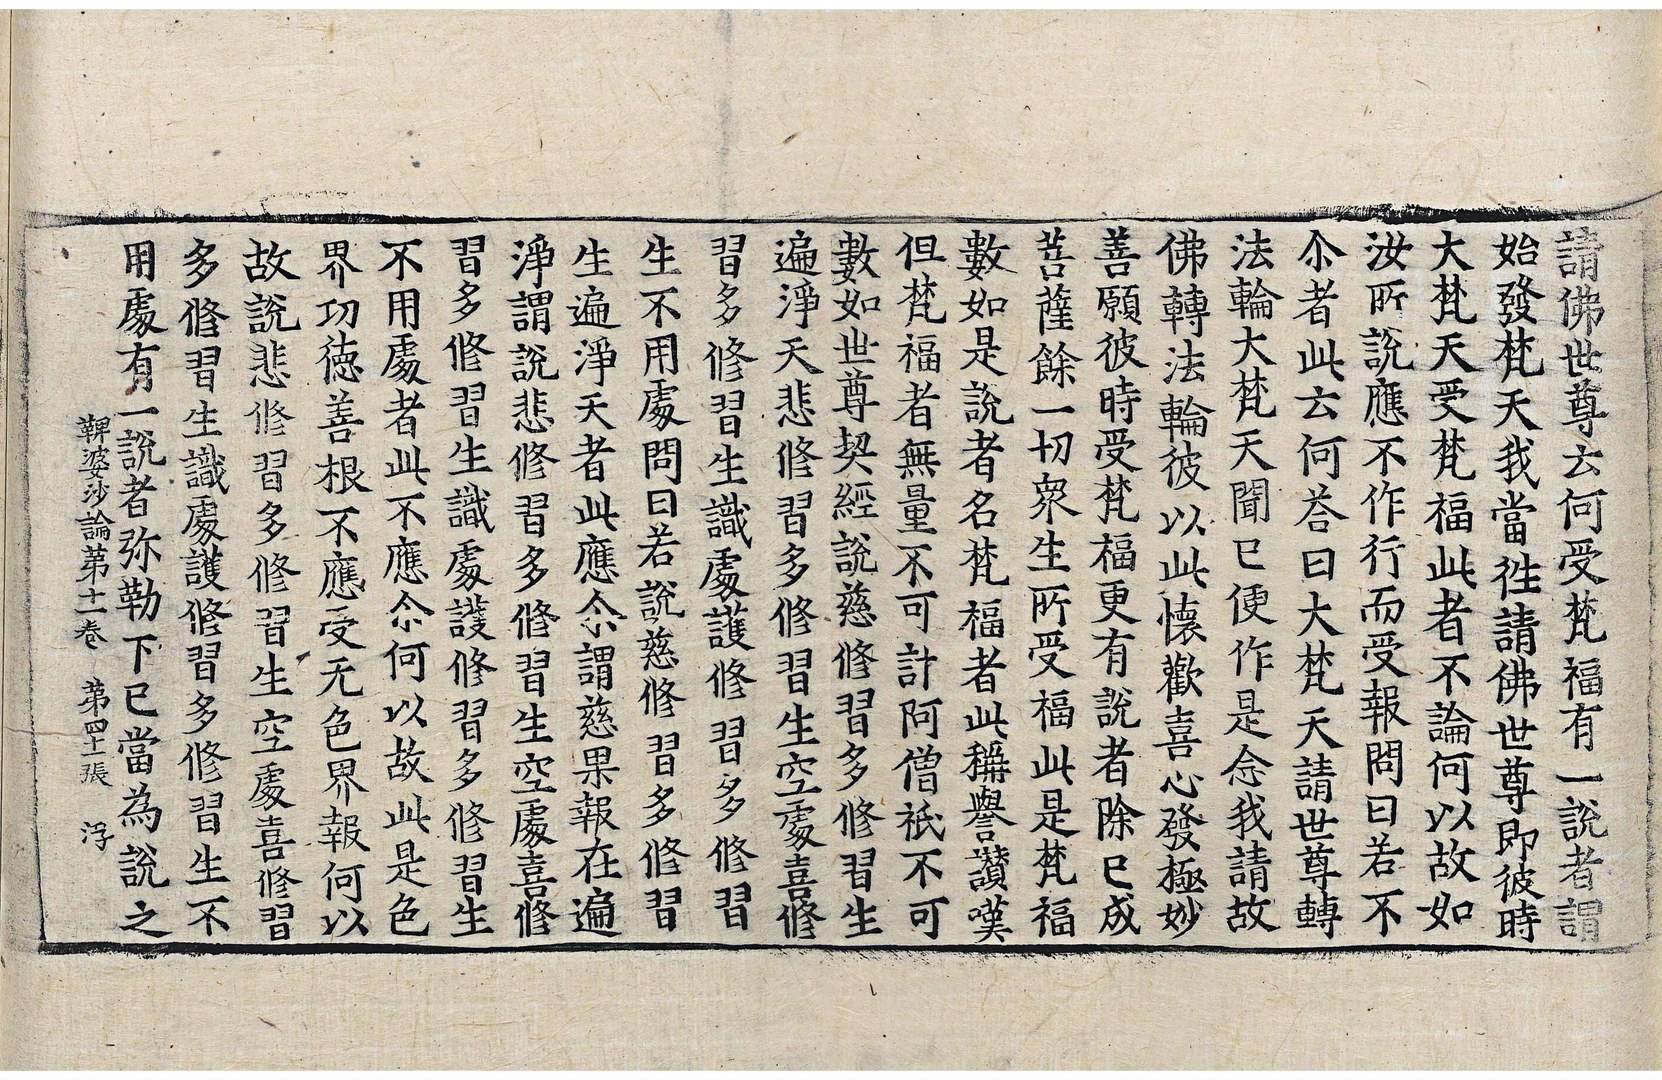 請佛世尊云何受梵福有一說者謂
始發梵天我當徃請佛世尊即彼時
大梵天受梵福此者不論何以故如
汝所說應不作行而受報問曰若不
尒者此云何荅曰大梵天請世尊轉
法輪大梵天聞已便作是念我請故
佛轉法輪彼以此懷歡喜心發極妙
善願彼時受梵福更有說者除已成
菩薩餘一切衆生所受福此是梵福
數如是說者名梵福者此稱譽讃嘆
但梵福者無量不可計阿僧祇不可
數如世尊契經說慈修習多修習生
遍淨天悲修習多修習生空處喜修
習多修習生識處護修習多修習
生不用處問曰若說慈修習多修習
生遍淨天者此應尒謂慈果報在遍
淨謂說悲修習多修習生空處喜修
習多修習生識處護修習多修習生
不用處者此不應尒何以故此是色
界功德善根不應受无色界報何以
故說悲修習多修習生空處喜修習
多修習生識處護修習多修習生不
用處有一說者弥勒下已當為說之
鞞婆沙論第十一卷 第四十張 浮